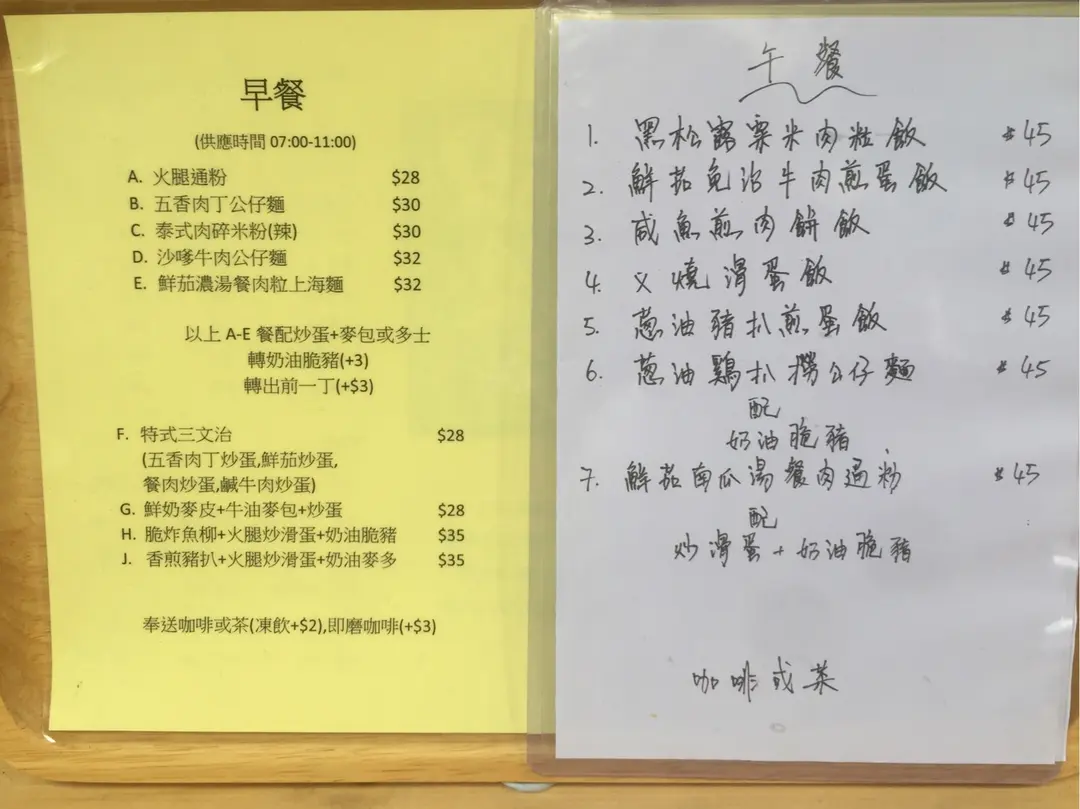 早餐
(供應時間 07:00-11:00)
A. 火腿通粉 $28
B. 五香肉丁公仔麵 $30
C. 泰式肉碎米粉(辣) $30
D. 沙嗲牛肉公仔麵 $32
E. 鮮茄濃湯餐肉粒上海麵 $32
以上 A-E 餐配炒蛋+麥包或多士
轉奶油脆豬(+3)
轉出前一丁(+$3)
F. 特式三文治 $28
(五香肉丁炒蛋,鮮茄炒蛋,
餐肉炒蛋,鹹牛肉炒蛋)
G. 鮮奶麥皮+牛油麥包+炒蛋 $28
H. 脆炸魚柳+火腿炒滑蛋+奶油脆豬 $35
J. 香煎豬扒+火腿炒滑蛋+奶油麥多 $35
奉送咖啡或茶(凍飲+$2),即磨咖啡(+$3)
午餐
1. 黑松露粟米肉粒飯 $45
2. 鮮茄免治牛肉煎蛋飯 $45
3. 咸魚煎肉餅飯 $45
4. 义燒滑蛋飯 $45
5. 蔥油豬扒煎蛋飯 $45
6. 蔥油鷄扒撈公仔麵 $45
配
奶油脆豬
7. 鮮茄南瓜湯餐肉通粉 $45
配
炒滑蛋+奶油脆豬
咖啡或茶